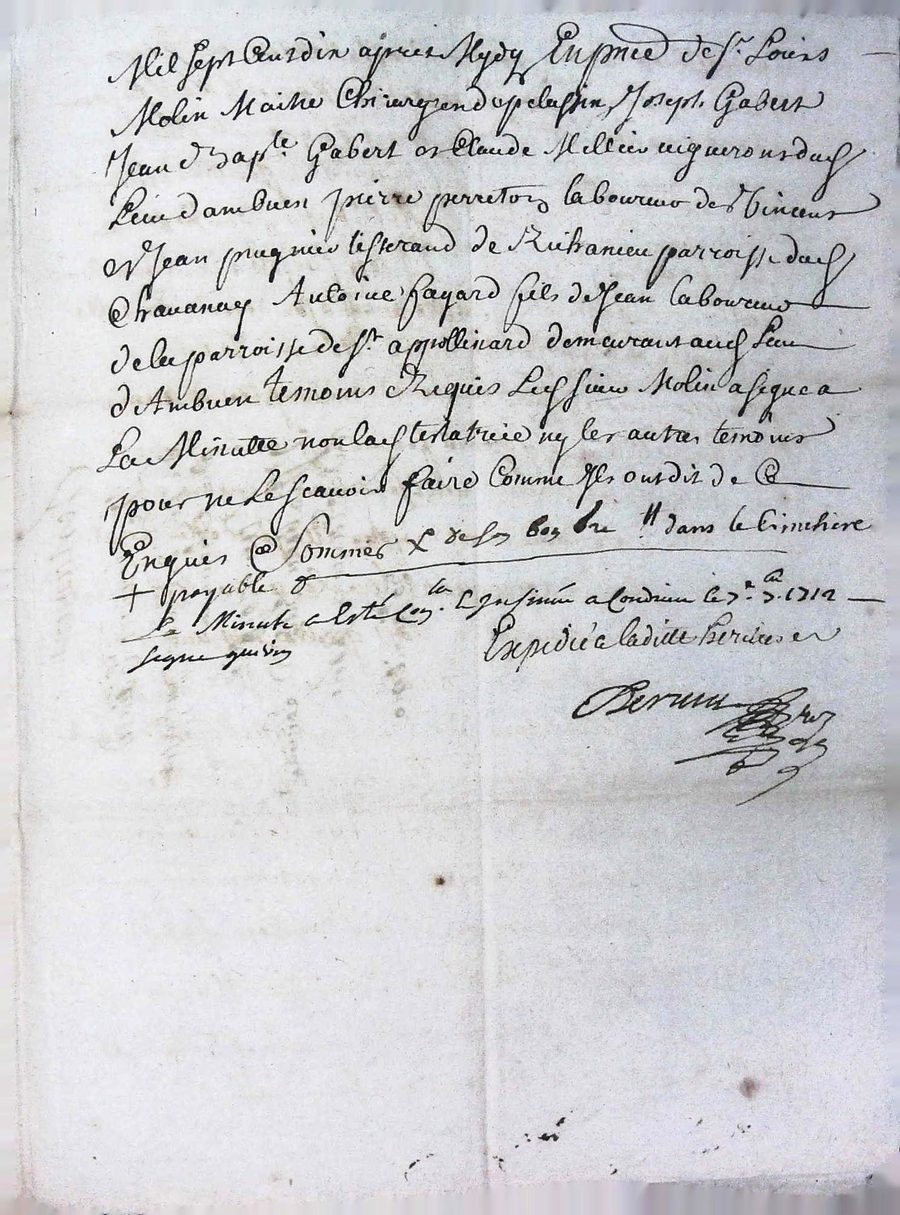 Mil sept Cent dix apres Mydy En pnce de Sr. Louis
Molin Maitre Chirurgien de pelussin, Joseph Gabert
Jean Bapte. Gabert et Claude Millier vignerons dud
Lieu dambuen pierre perreton laboureur de St Vincent
et Jean prugnier tisserand de Richanieu parroisse dud
Chavanay Antoine fayard fils de Jean laboureur
de la parroisse de St. appollinard demeurant aud Lieu
d'Ambuen temoins Requis Led sieur Molin a signe a
La Minutte non lad testatrice ny les autres temoins
pour ne Le scavoir faire Comme Ils ont dit de Ce
Enquis Sommes dans le Cimetiere
+ payable
La Minute a Esté a Condrieu le 1712
signe
Expedié a laditte heritiere